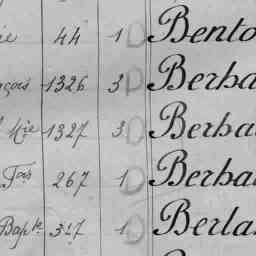 ie 44 1 D Bento
nçois 1326 3 D Berba
Mie 1327 3 D Berba
Fois 267 1 D Berbal
Bapte 327 1 D Berla